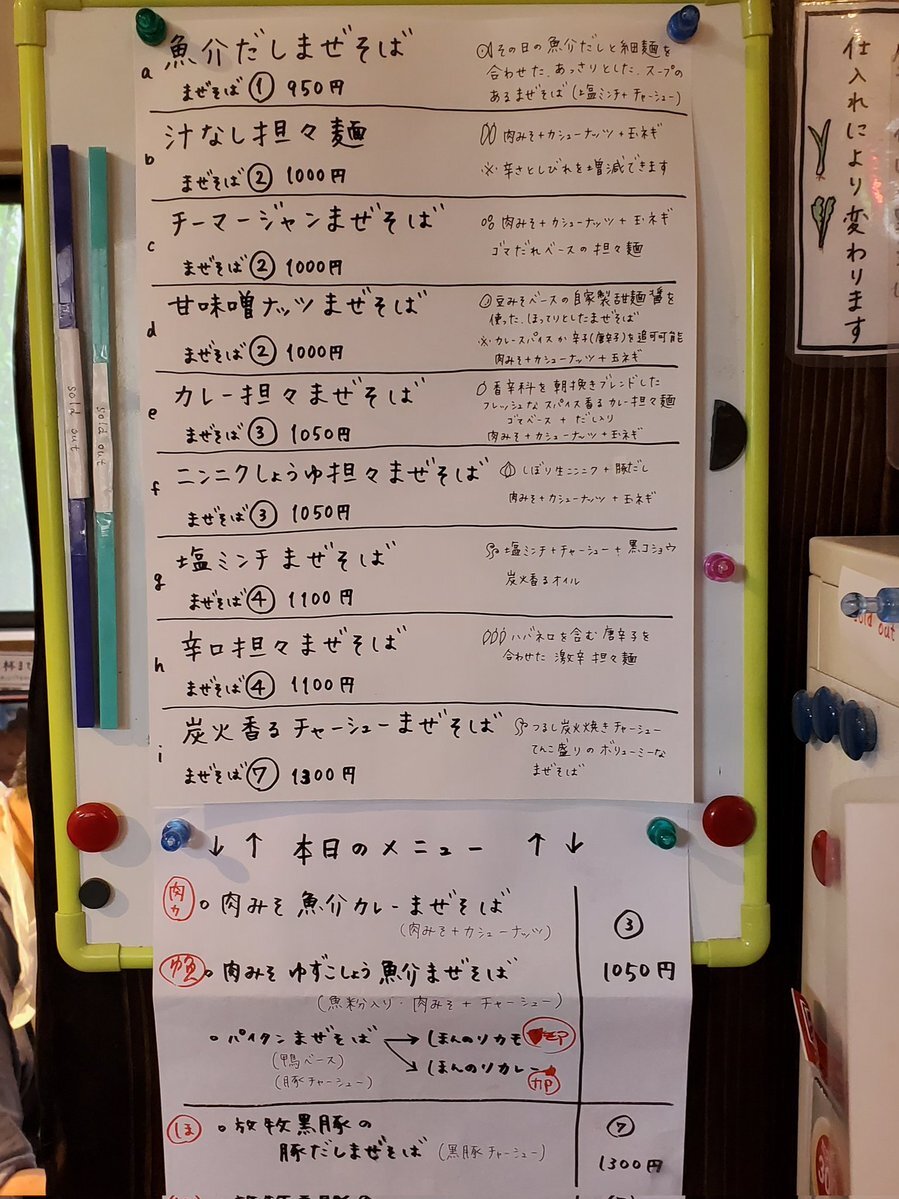 a 魚介だしまぜそば
まぜそば ① 950円
その日の魚介だしと細麺を
合わせた、あっさりとした、スープの
あるまぜそば(塩ミンチ+チャーシュー)
b 汁なし担々麺
まぜそば ② 1000円
肉みそ+カシューナッツ+玉ネギ
※辛さとしびれを増減できます
c チーマージャンまぜそば
まぜそば ② 1000円
肉みそ+カシューナッツ+玉ネギ
ゴマだれベースの担々麺
d 甘味噌ナッツまぜそば
まぜそば ② 1000円
豆みそベースの自家製甜麺醤を
使った、ぼってりとしたまぜそば
※カレースパイスか辛子(唐辛子)を追可可能
肉みそ+カシューナッツ+玉ネギ
e カレー担々まぜそば
まぜそば ③ 1050円
香辛料を朝挽きブレンドした
フレッシュなスパイス香るカレー担々麺
ゴマベース+だし入り
肉みそ+カシューナッツ+玉ネギ
f ニンニクしょうゆ担々まぜそば
まぜそば ③ 1050円
しぼり生ニンニク+豚だし
肉みそ+カシューナッツ+玉ネギ
g 塩ミンチまぜそば
まぜそば ④ 1100円
塩ミンチ+チャーシュー+黒コショウ
炭火香るオイル
h 辛口担々まぜそば
まぜそば ④ 1100円
ハバネロを含む唐辛子を
合わせた激辛担々麺
i 炭火香るチャーシューまぜそば
まぜそば ⑦ 1300円
つるし炭火焼きチャーシュー
てんこ盛りのボリューミーな
まぜそば
↓↑ 本日のメニュー ↑↓
肉カ 。肉みそ魚介カレーまぜそば
(肉みそ+カシューナッツ)
③
1050円
ゆ魚 。肉みそゆずこしょう魚介まぜそば
(魚粉入り・肉みそ+チャーシュー)
。パイタンまぜそば → ほんのりカモ
(鴨ベース) → ほんのりカレー
(豚チャーシュー) カP
ほ 。放牧黒豚の
豚だしまぜそば (黒豚チャーシュー)
⑦
1300円
sold out
sold out
仕入れにより変わります
sold out